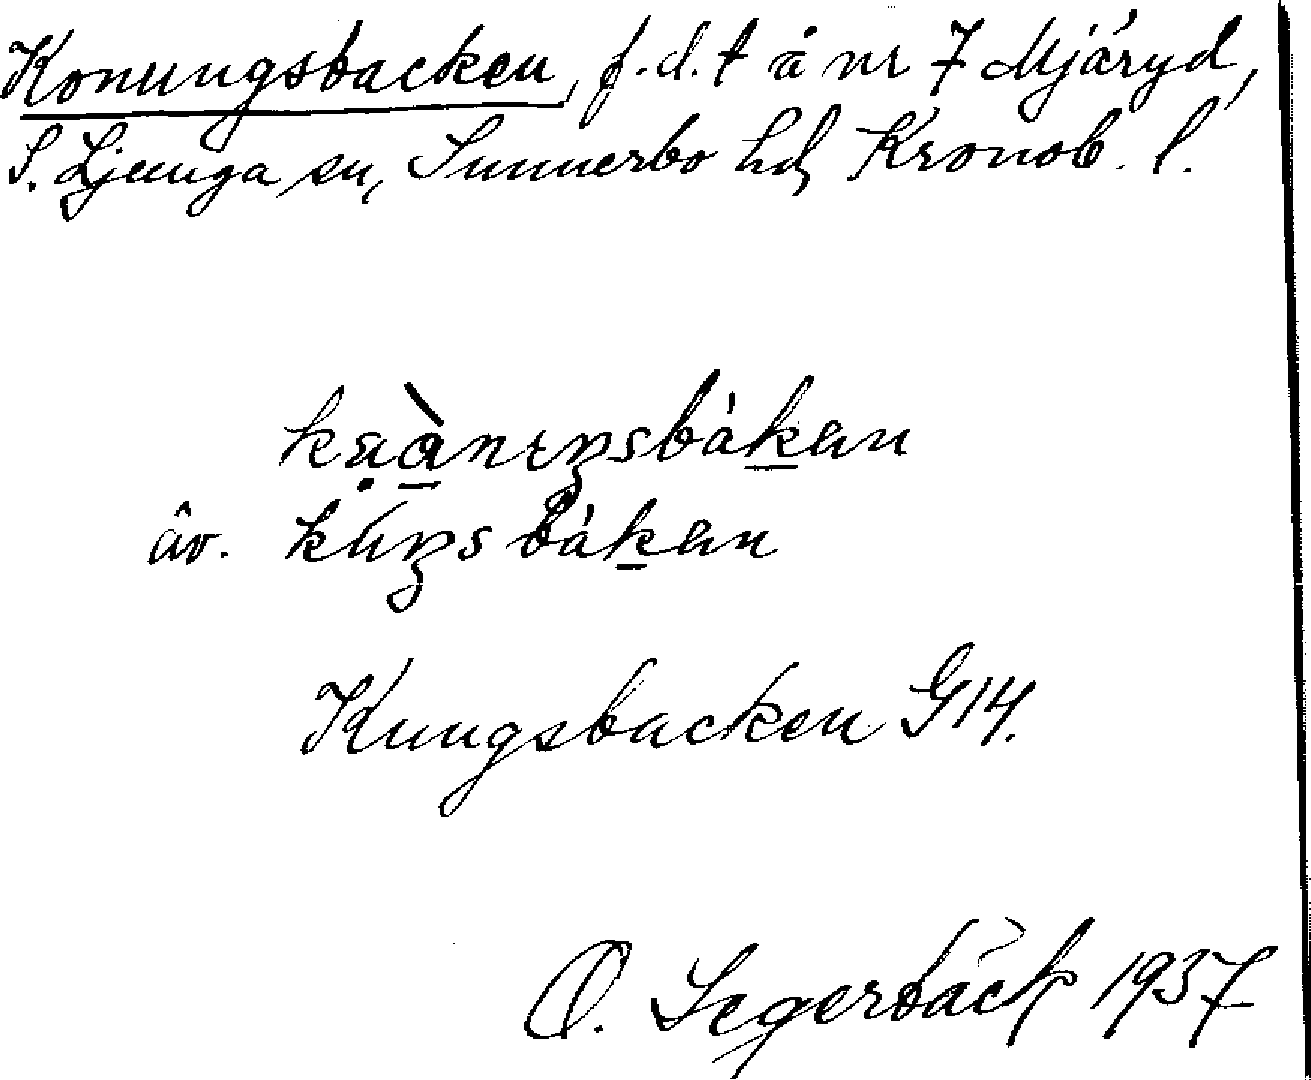 Konungsbacken, f.d.t å nr 7 Mjäryd,
S. Ljunga sn, Sunnerbo hd, Kronob. l.
äv. kúŋsbákan
Kungsbacken G14.
O. Segerbäck 1937